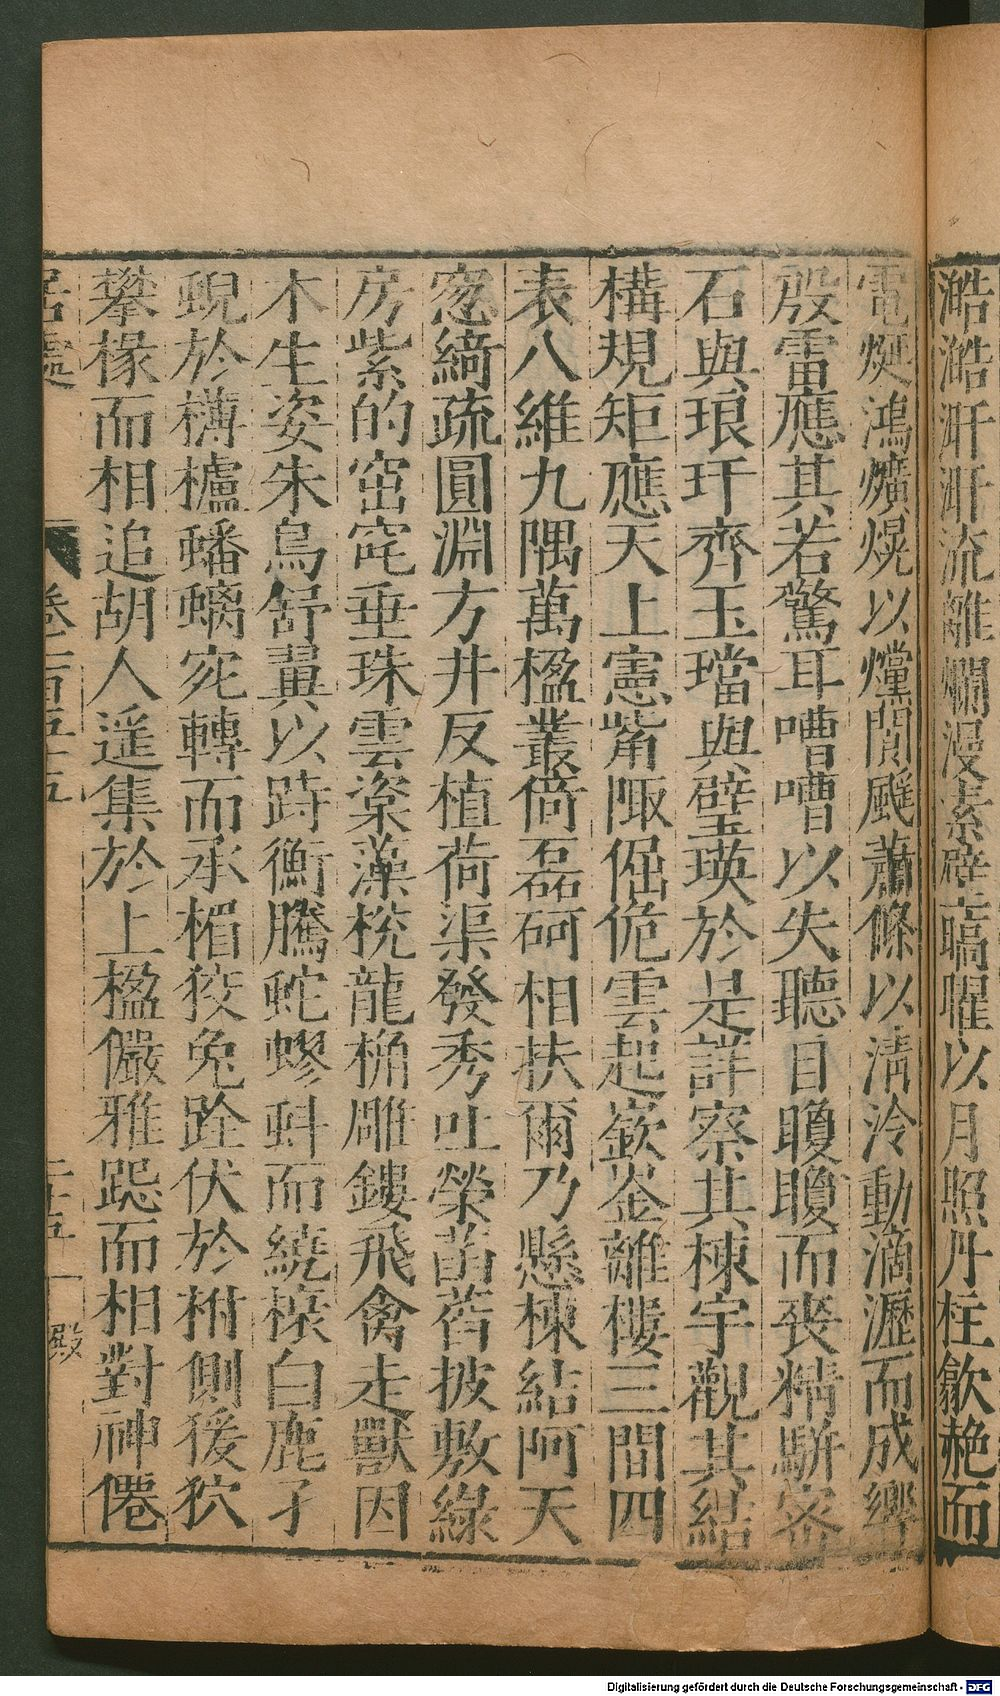 澔澔涆涆流離爛漫素壁暠曜以月照丹柱歙赩而
電烻鴻爌熀以爣閬颾蕭條以清泠動滴瀝而成響
殷雷應其若驚耳嘈嘈以失聽目矎矎而喪精駢密
石與琅玕齊玉璫與璧瑛於是詳察其棟宇觀其結
構規矩應天上憲觜陬倔佹雲起嶔崟離樓三間四
表八維九隅萬楹叢倚磊砢相扶爾乃懸棟結阿天
窓綺疏圓淵方井反植荷渠發秀吐榮菡萏披敷綠
房紫的窋窀垂珠雲楶藻梲龍桷雕鏤飛禽走獸因
木生姿朱鳥舒翼以跱衡騰蛇蟉虯而繞榱白鹿孑
蜺於欂櫨蟠螭宛轉而承楣狡兔跧伏於柎側猨狖
攀椽而相追胡人遥集於上楹儼雅跽而相對神僊
居處
卷一百五十五
二十五
殿
Digitalisierung gefördert durch die Deutsche Forschungsgemeinschaft - DFG